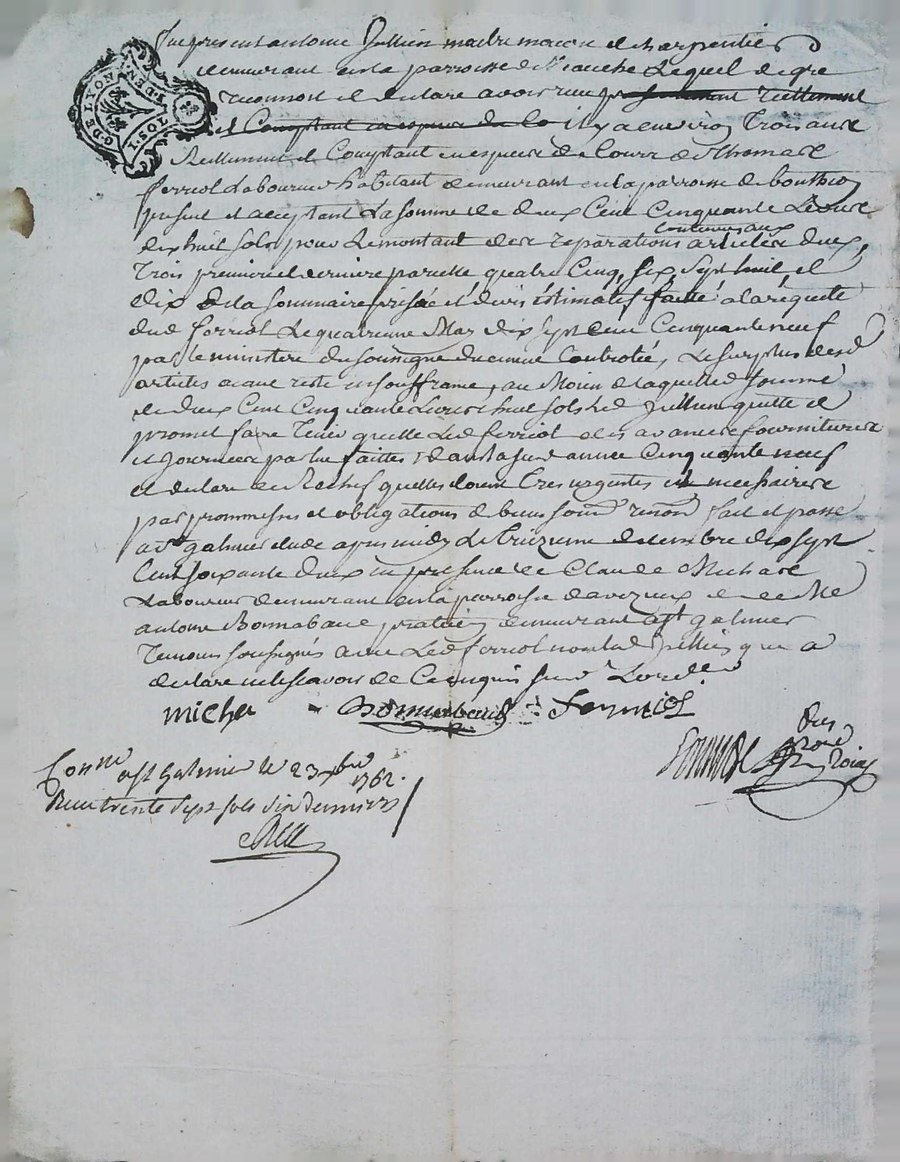 G. DE LYON
1. SOL
DEN
fut present antoine Jullien maitre macon et charpentier
demeurant en la parroisse de Lequel de gre
reconnoit et declare avoir recu presentement reellement
et Comptant en espece du Co il y a environ Trois ans
Reellement et Comptant en espece de Cours de Thomas
ferriol Laboureur habitant demeurant en la parroisse de bouthéon
present et acceptant La somme de deux Cent Cinquante Livres
dix huit sols pour Le montant des reparations contenues aux articles deux,
Trois premiere et derniere parcelle quatre Cinq, six Sept huit et
dix de la Sommaire prisée et devis éstimatif faitte a la réquete
dud ferriol Le quatrieme May dix Sept Cent Cinquante neuf
par le ministere du soussigné duement Controllée, Le surplus desd
articles ayant resté en souffrance, au Moien de laquelle somme
de deux Cent Cinquante Livres huit sols Led Jullien quitte et
promet faire Tenir quitte Led ferriol des avances fournitures
et Journées par lui faittes dans lasusd année Cinquante neuf
et declare de Rechef quelles etoient tres urgentes et necessaires
par prommesses et obligations de biens soum renon fait et passé
a St galmier etude apres midy Le treizieme decembre dix sept
Cent soixante deux en presence de Claude Michard
Laboureur demeurant en la parroisse daveizieux et de Me
antoine Bonnabaud praticien demeurant a St galmier
Temoins soussignés avec Led ferriol non led Jullien qui a
declare ne le scavoir de Ce enquis
micha Bonnabaud Ferriol
Conllé a St Galmier le 23 xbre 1762.
Recu trente Sept sols six deniers